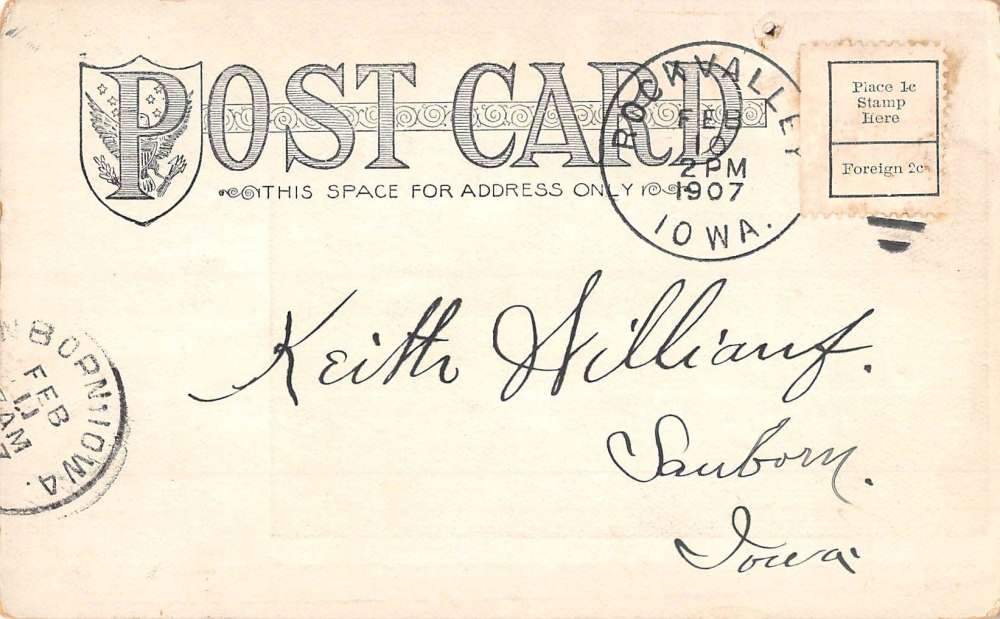 POST CARD
THIS SPACE FOR ADDRESS ONLY
ROCK VALLEY
FEB
10
2 PM
1907
IOWA.
Place 1c
Stamp
Here
Foreign 2c
Keith Williams.
Sanborn.
Iowa.
NBORN, IOWA.
FEB
11
AM
7